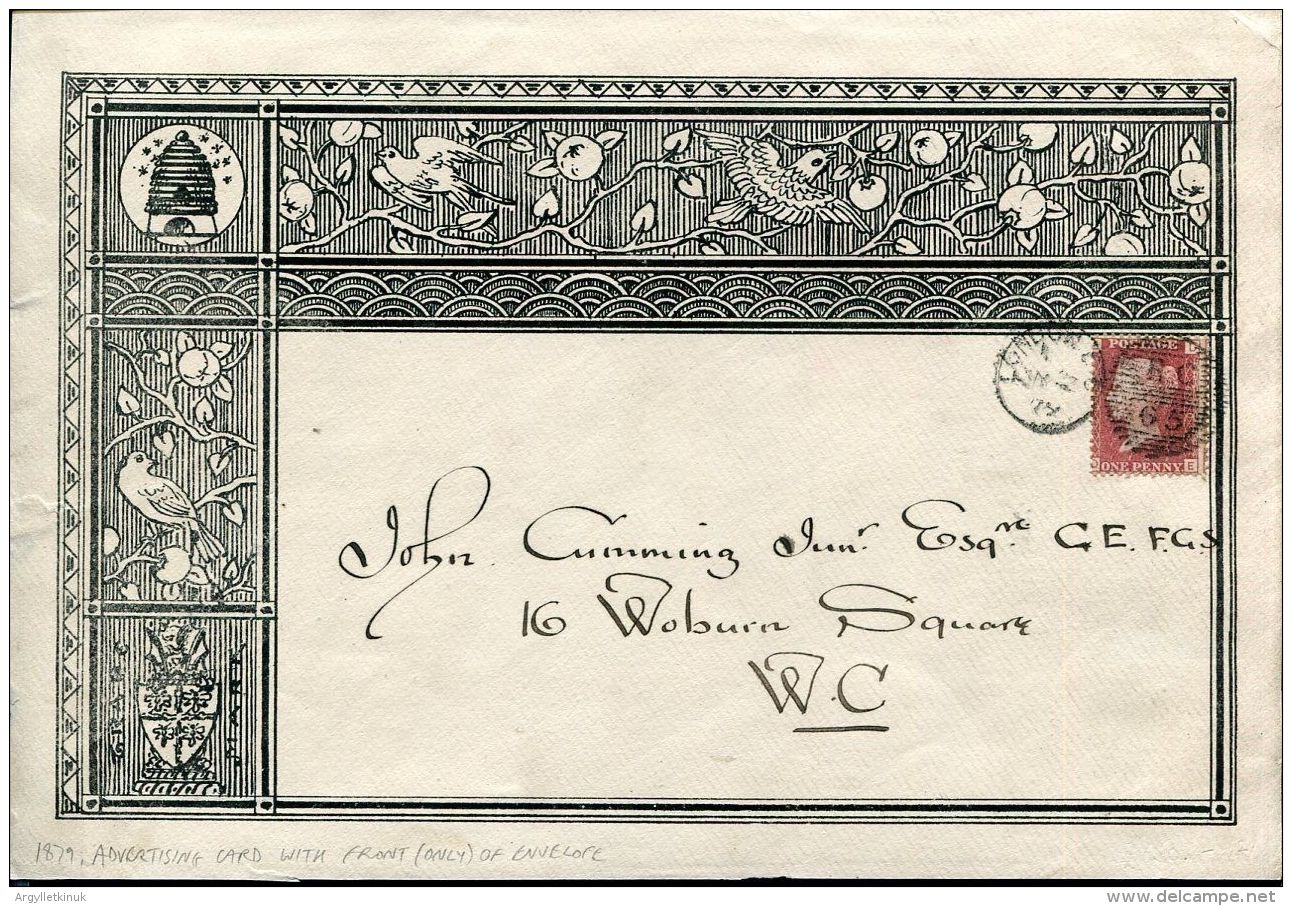 LONDON
POSTAGE
ONE PENNY
E
John Cumming Junr. Esqre. C.E. F.G.S
16 Woburn Square
W.C
TRADE
MARK
1879, ADVERTISING CARD WITH FRONT (ONLY) OF ENVELOPE
Argylletkinuk
www.delcampe.net